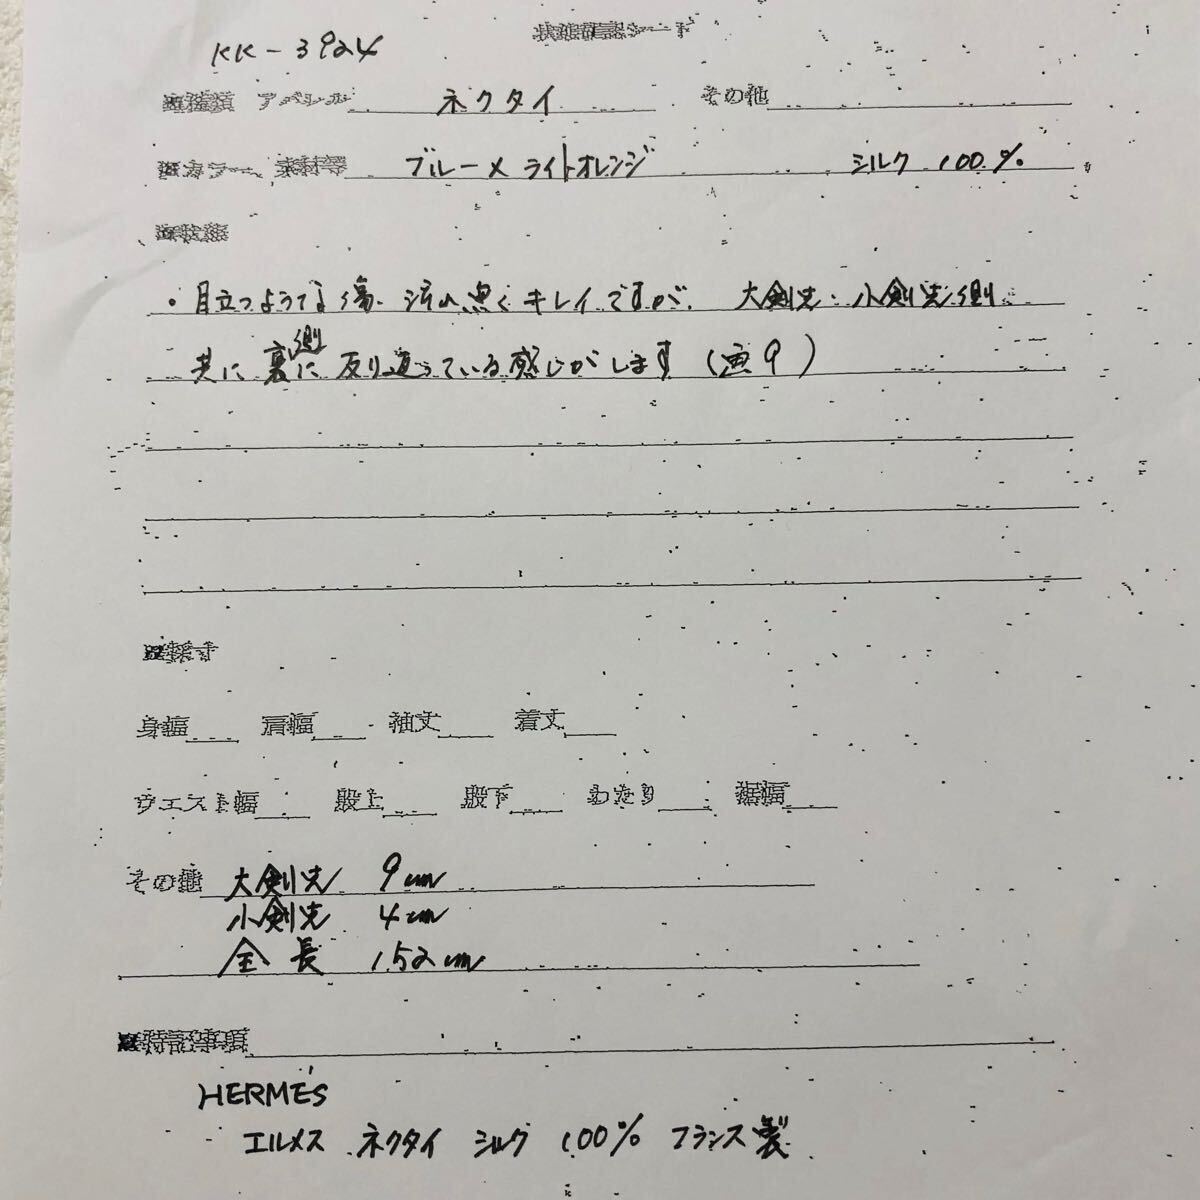 状態確認シート
KK-3924
■種類 アパレル ネクタイ その他
■カラー、素材等 ブルー×ライトオレンジ シルク 100%
■状態
・目立つような傷、汚れ無くキレイですが、大剣先・小剣先側
共に裏側に反り返っている感じがします(画9)
■採寸
身幅 肩幅 袖丈 着丈
ウエスト幅 股上 股下 わたり 裾幅
その他 大剣先 9cm
小剣先 4cm
全長 152cm
■特記事項
HERMÉS
エルメス ネクタイ シルク 100% フランス製